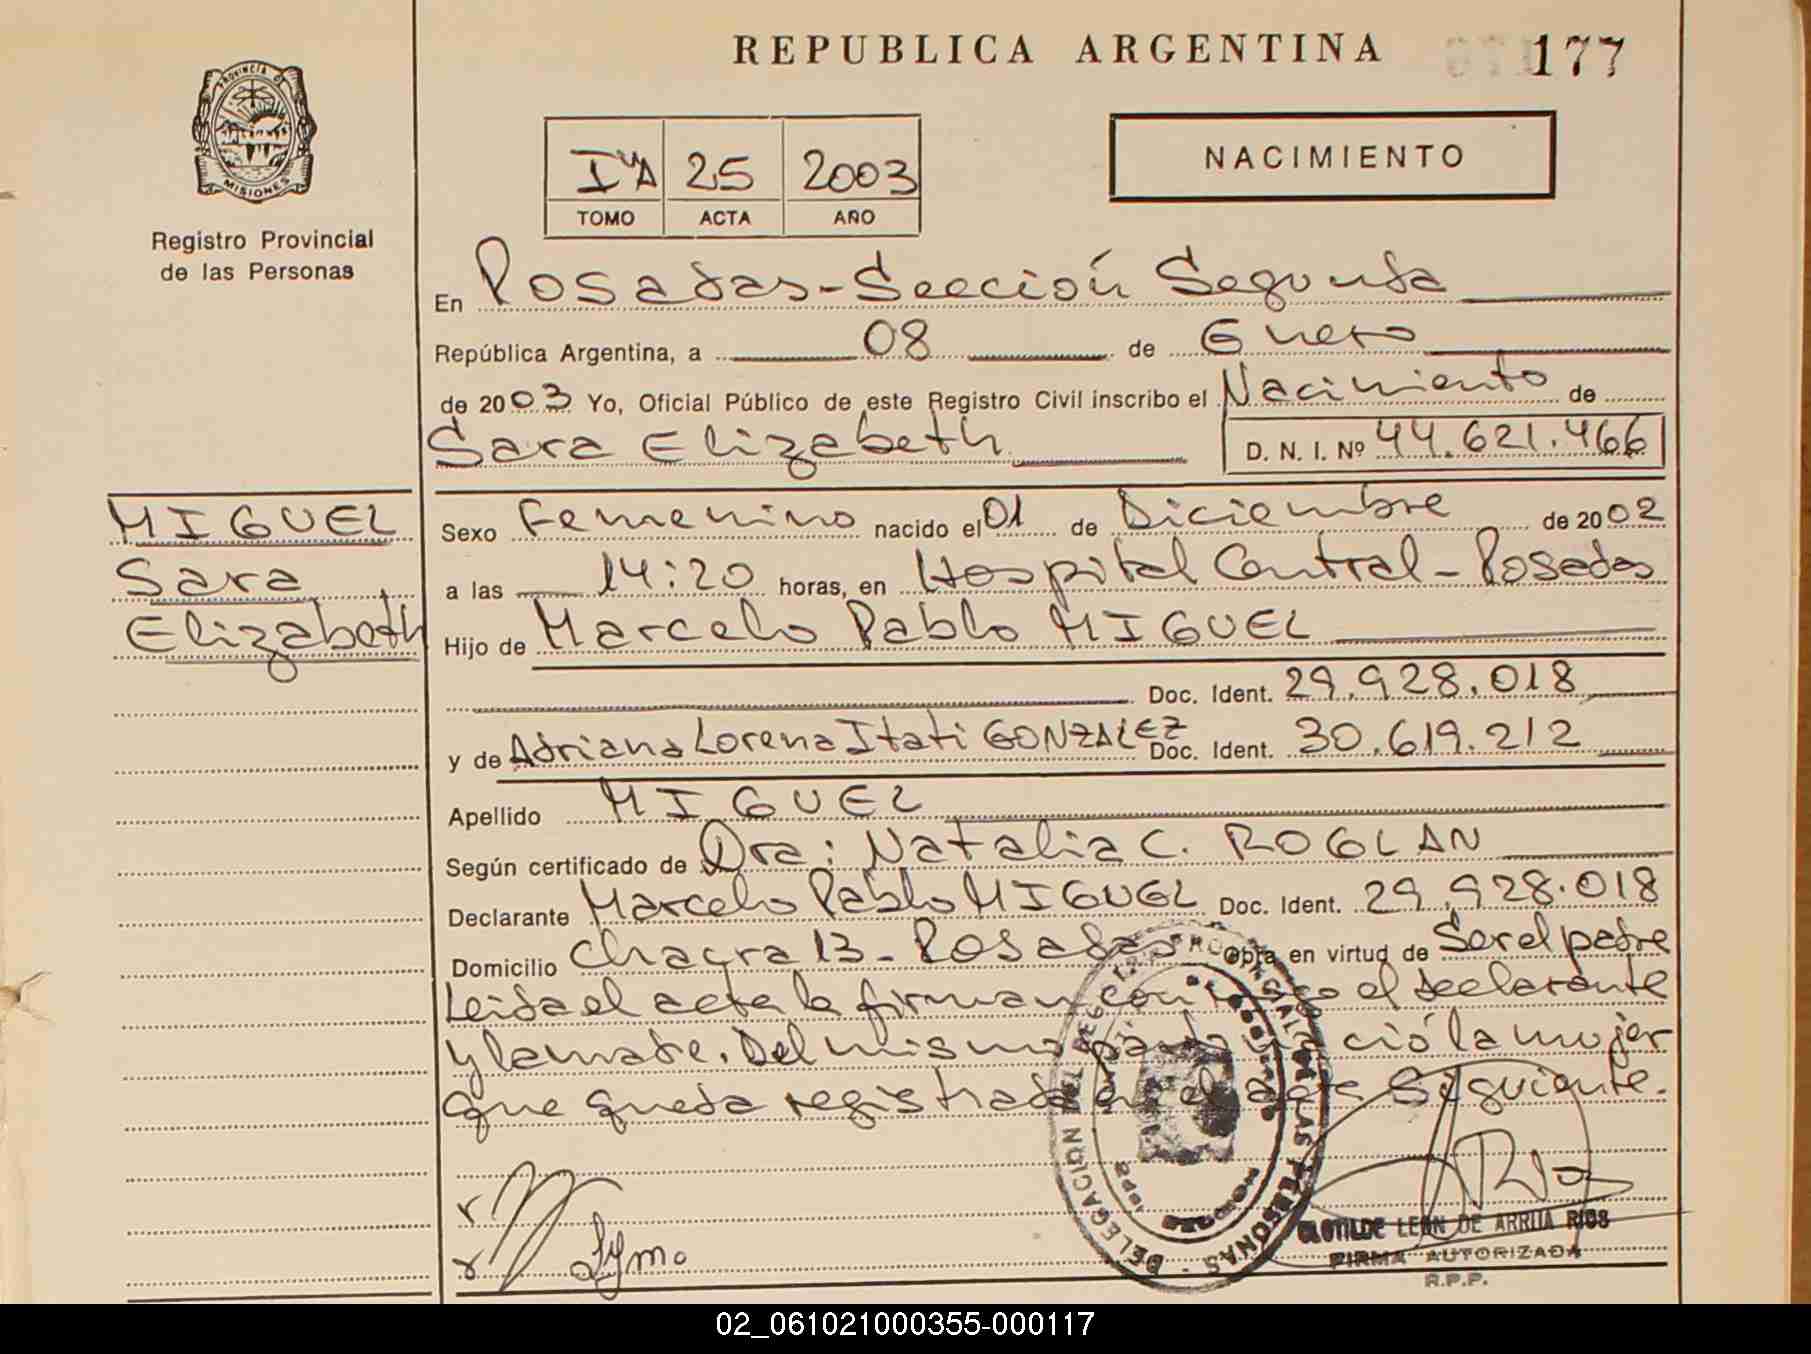 REPUBLICA ARGENTINA
177
PROVINCIA DE
MISIONES
Registro Provincial
de las Personas
TOMO
ACTA 25
AÑO 2003
NACIMIENTO
En Posadas - Sección Segunda
República Argentina, a 08 de Enero
de 2003 Yo, Oficial Público de este Registro Civil inscribo el Nacimiento de
Sara Elizabeth D. N. I. Nº 44.621.466
MIGUEL
Sara
Elizabeth
Sexo Femenino nacido el 01 de Diciembre de 2002
a las 14:20 horas, en Hospital Central - Posadas
Hijo de Marcelo Pablo MIGUEL
Doc. Ident. 29.928.018
y de Adriana Lorena Itati GONZALEZ Doc. Ident. 30.619.212
Apellido MIGUEL
Según certificado de Dra: Natalia C. ROGLAN
Declarante Marcelo Pablo MIGUEL Doc. Ident. 29.928.018
Domicilio Chacra 13 - Posadas Obra en virtud de Ser el padre
Leida el acta la firman conmigo el declarante
y la madre. Del mismo parto nació la mujer
que queda registrada en el acta siguiente.
DELEGACION DEL REGISTRO PROVINCIAL DE LAS PERSONAS
CLOTILDE LEON DE ARRUA RIOS
FIRMA AUTORIZADA
R.P.P.
02_061021000355-000117